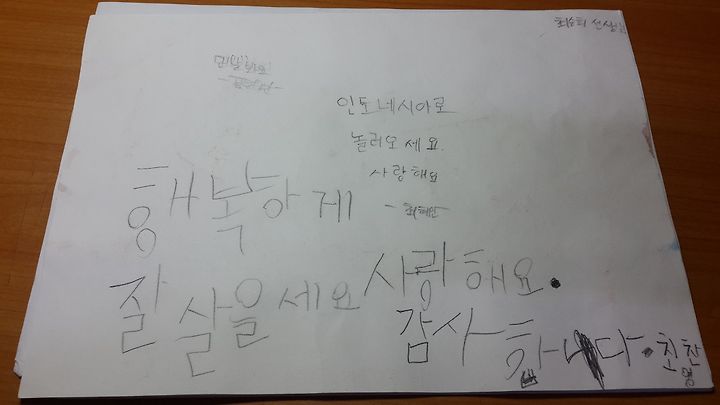 최순희 선생님
인도네시아로
놀러오세요.
사랑해요
-최혜인-
행복하게
잘 살을세요 사랑해요.
감사합니다. 최찬영